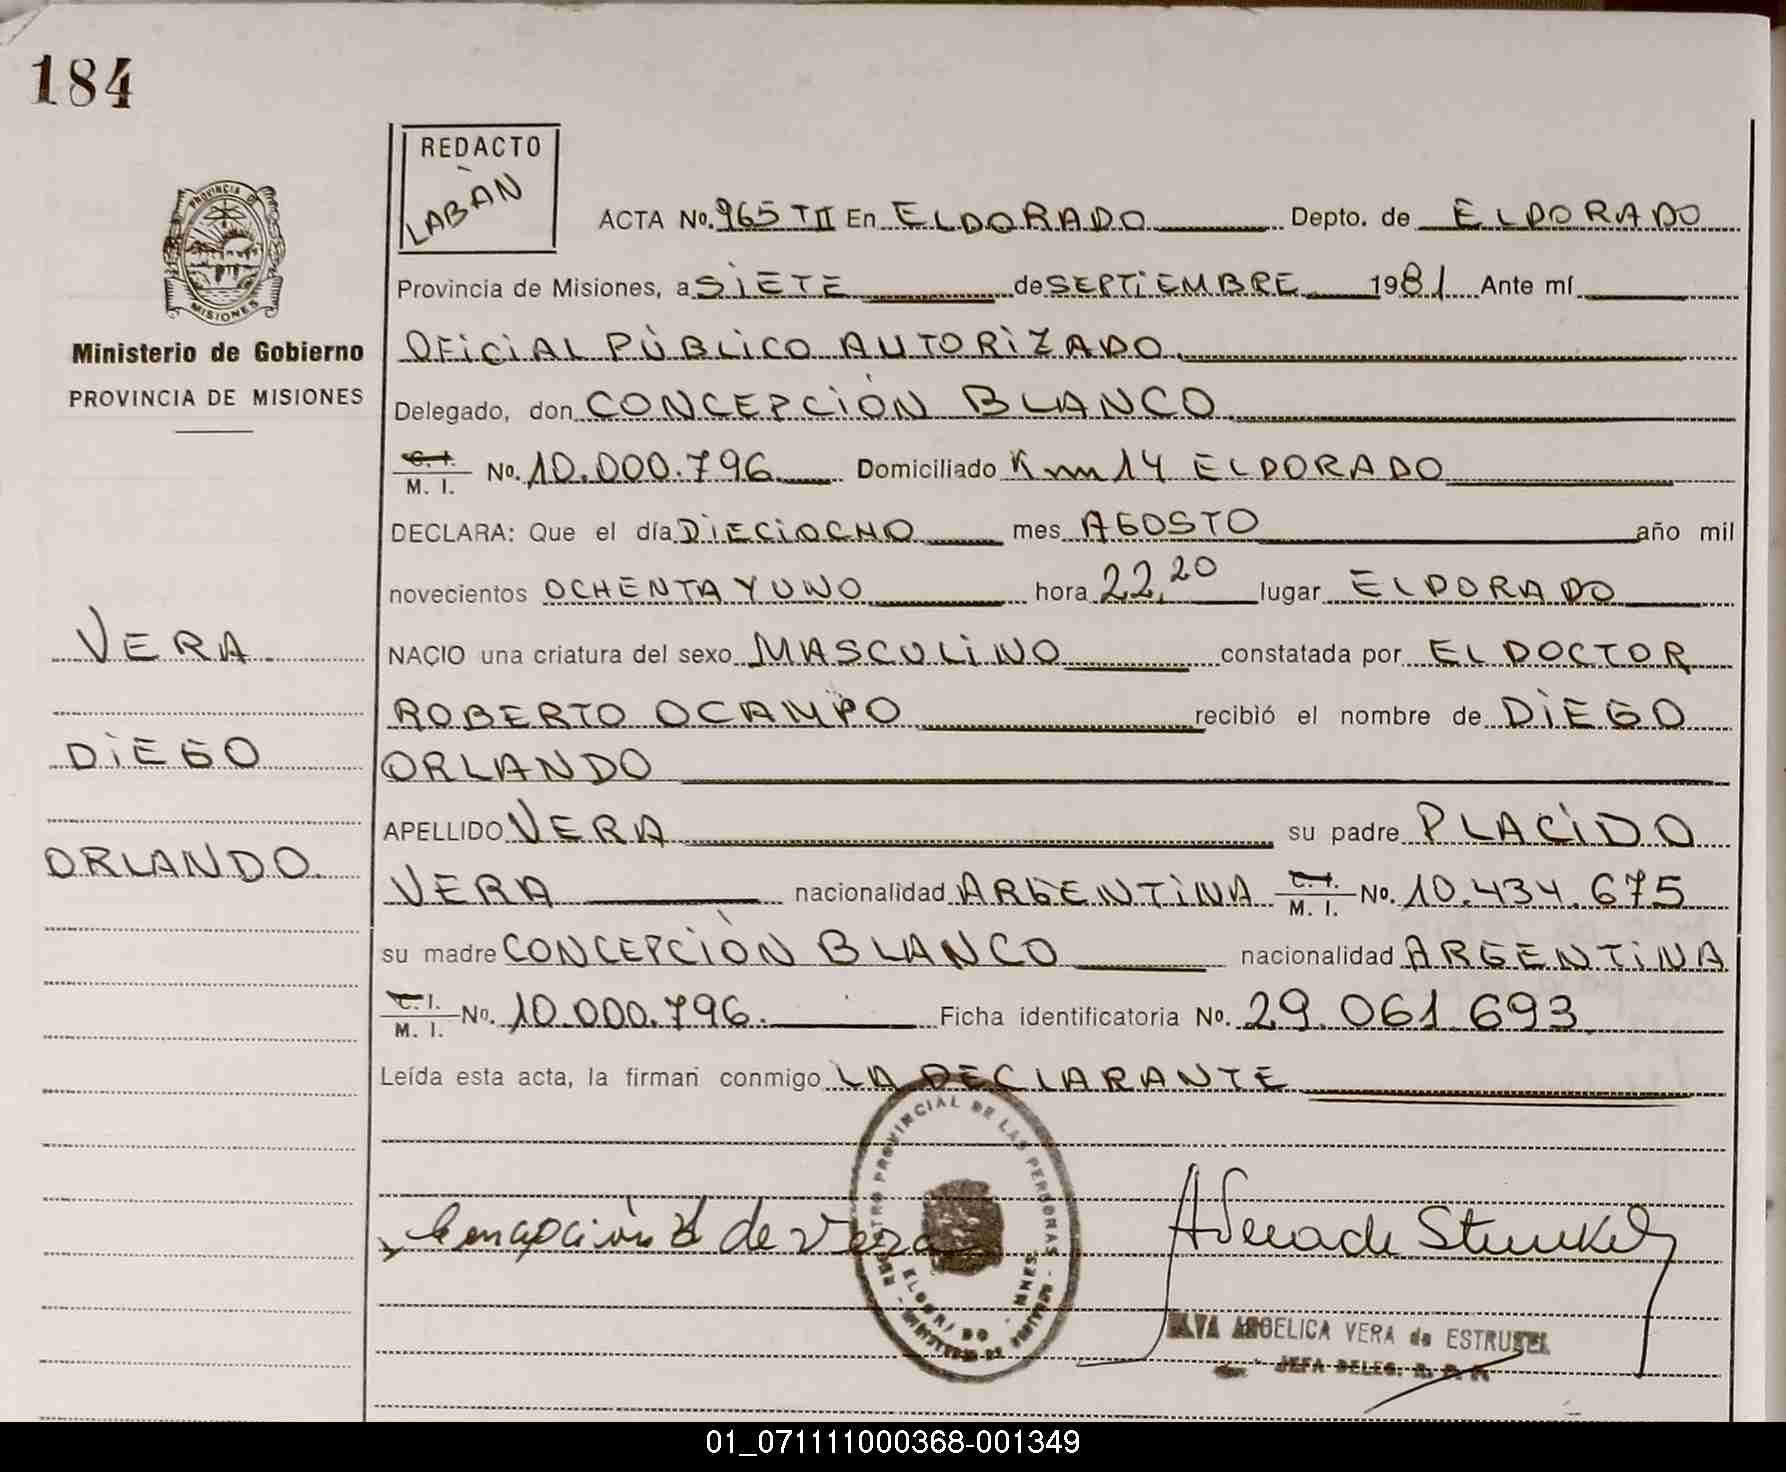 184
REDACTO
LABÁN
PROVINCIA DE
MISIONES
Ministerio de Gobierno
PROVINCIA DE MISIONES
ACTA No. 965 TII En ELDORADO Depto. de ELDORADO
Provincia de Misiones, a SIETE de SEPTIEMBRE 1981 Ante mí
OFICIAL PÚBLICO AUTORIZADO
Delegado, don CONCEPCIÓN BLANCO
C. I.
M. I. No. 10.000.796 Domiciliado Km 14 ELDORADO
DECLARA: Que el día DIECIOCHO mes AGOSTO año mil
novecientos OCHENTA Y UNO hora 22,20 lugar ELDORADO
NACIO una criatura del sexo MASCULINO constatada por EL DOCTOR
ROBERTO OCAMPO recibió el nombre de DIEGO
ORLANDO
APELLIDO VERA su padre PLACIDO
VERA nacionalidad ARGENTINA C. I.
M. I. No. 10.434.675
su madre CONCEPCIÓN BLANCO nacionalidad ARGENTINA
C. I.
M. I. No. 10.000.796. Ficha identificatoria No. 29.061.693
Leída esta acta, la firman conmigo LA DECLARANTE
VERA
DIEGO
ORLANDO.
Concepción B de Vera
REGISTRO PROVINCIAL DE LAS PERSONAS
ELDORADO
MNES
MINISTERIO DE
ANGELICA VERA de
JEFA DELEG. R. P. P.
01_071111000368-001349